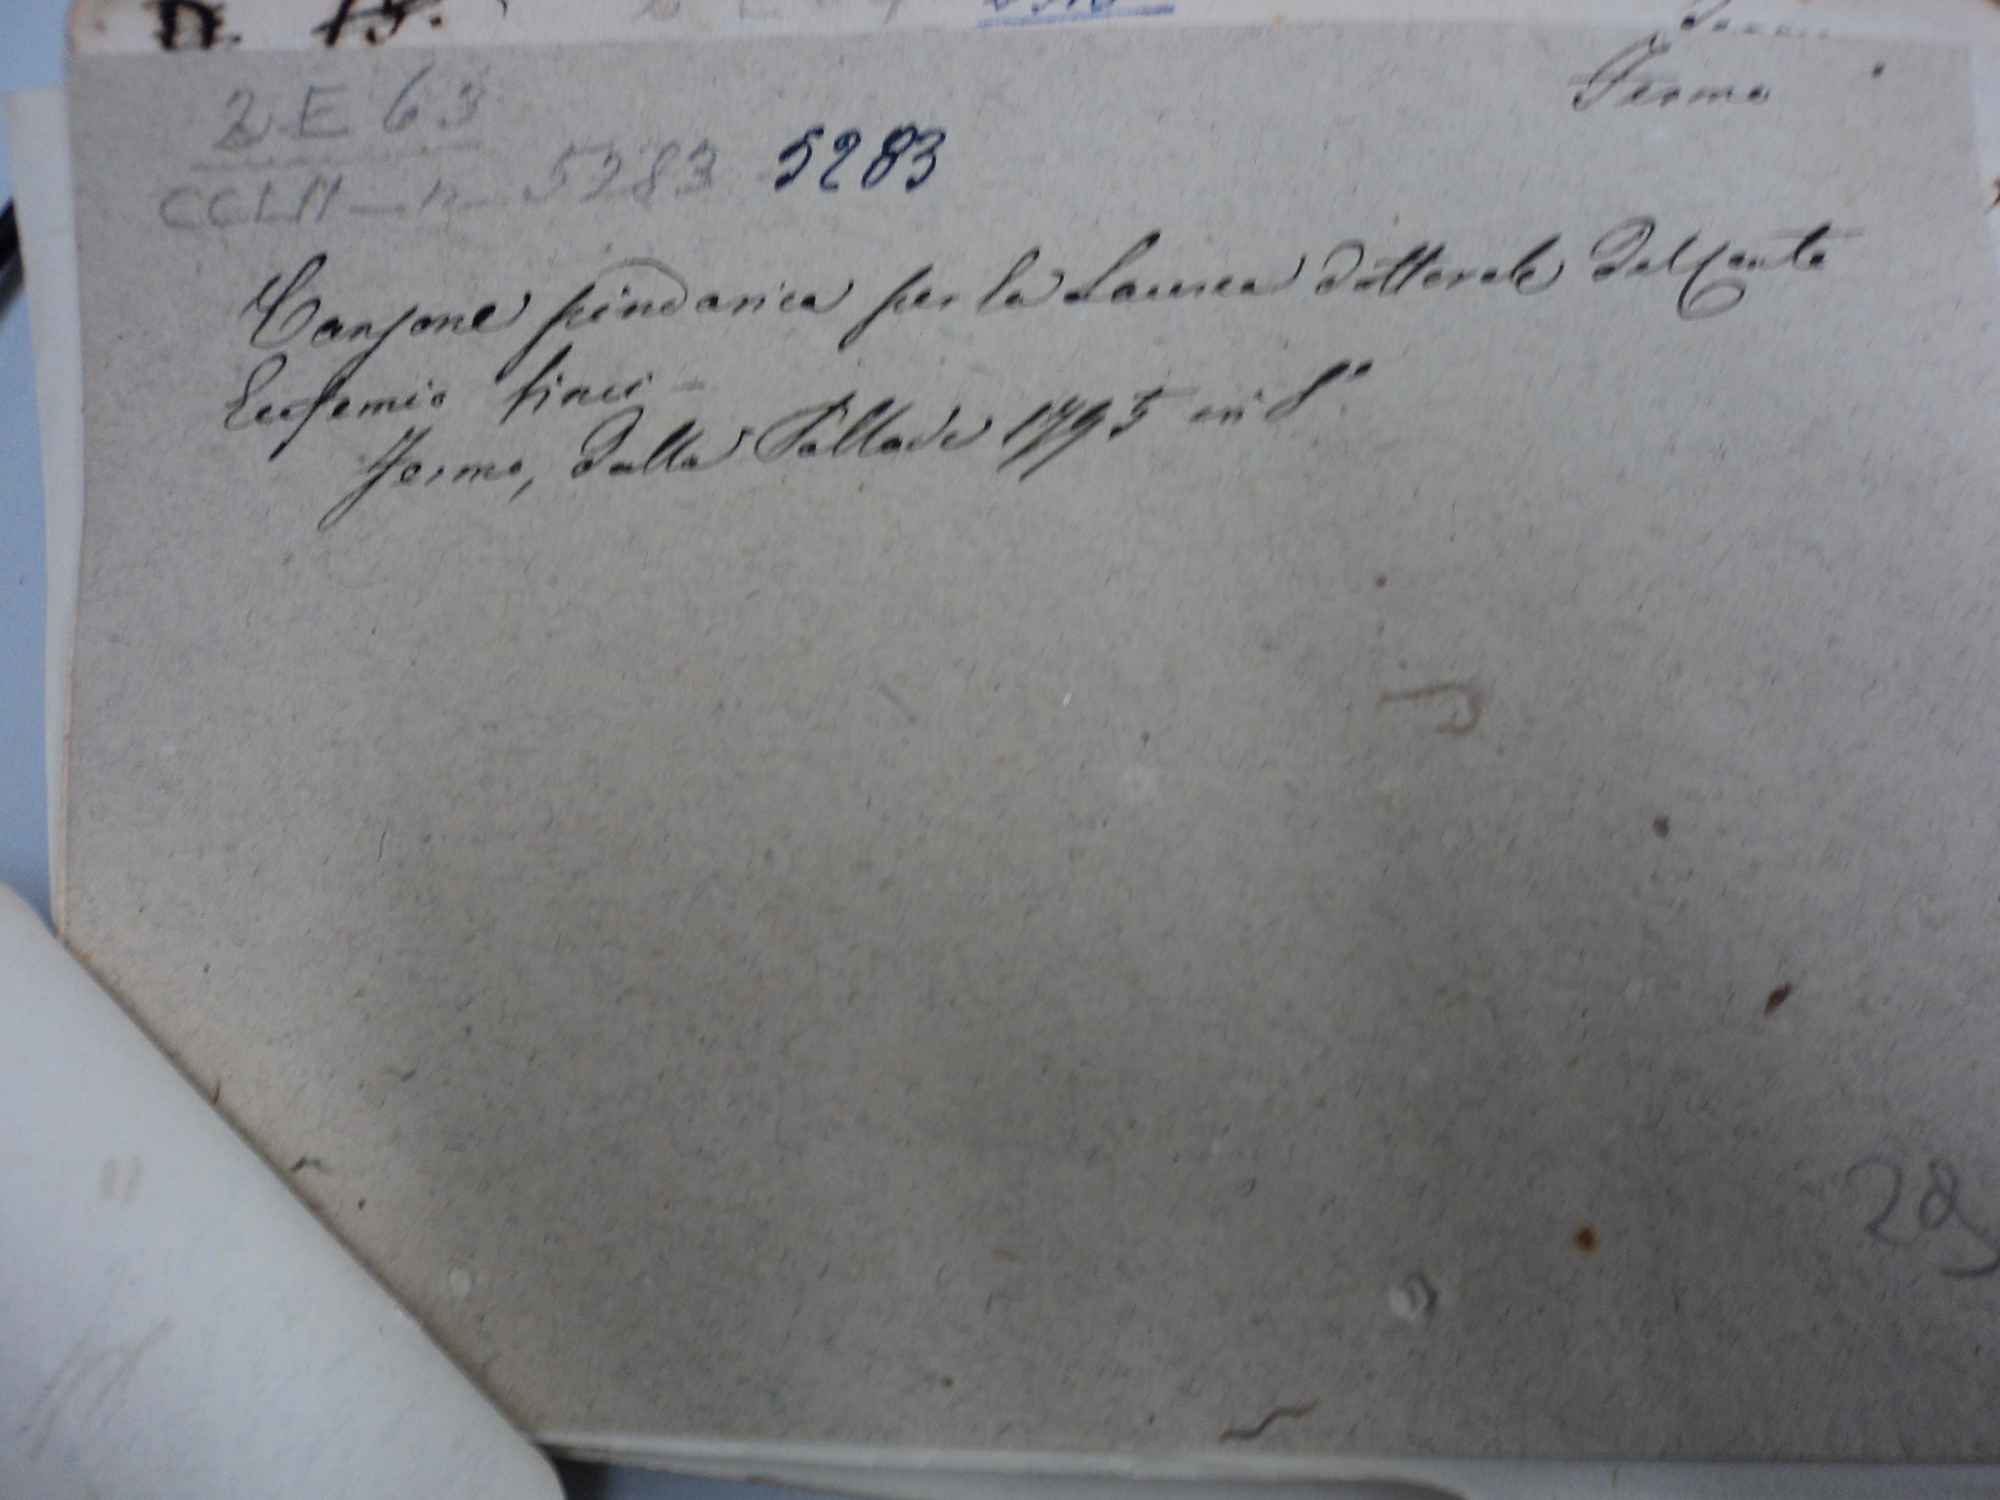 D. 15.
Fermo
2 E 63
CCLII - n - 5283 5283
Canzone pindarica per la Laurea dottorale del Conte
Eufemio Vinci -
Fermo, dalla Pallade 1795 in 8°.
29